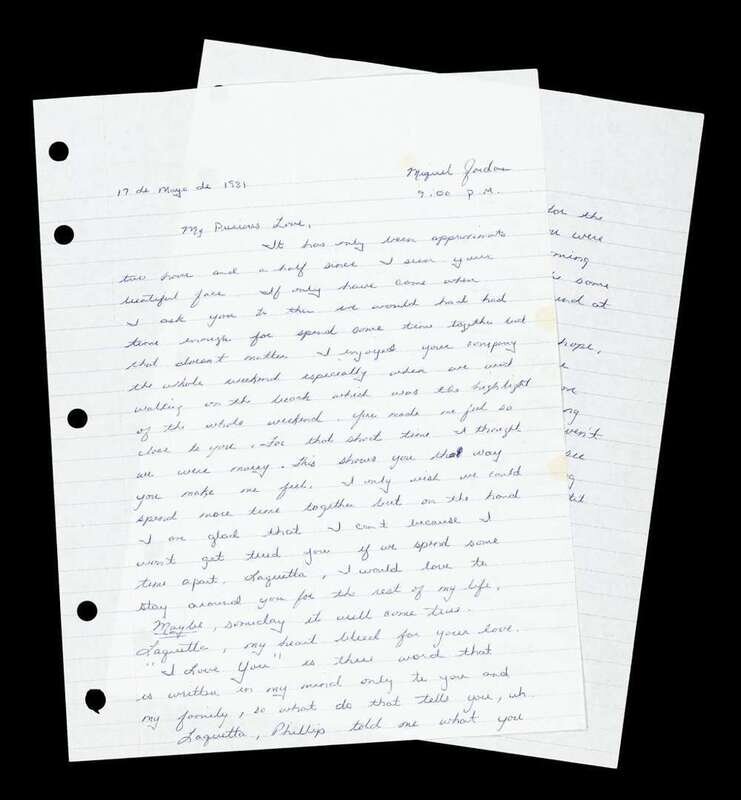 Miguel Jordan
17 de Mayo de 1981
9:00 P.M.
My Precious Love,
It has only been approximate
two hour and a half since I seen your
beautiful face. If only have come when
I ask you to then we would had had
time enough for spend some time together but
that doesn't matter. I enjoyed your company
the whole weekend especially when we went
walking on the beach which was the highlight
of the whole weekend. You made me feel so
close to you. For that short time I thought
we were marry. This shows you that way
you make me feel. I only wish we could
spend more time together but on the hand
I am glad that I can't because I
won't get tired you if we spend some
time apart. Laquetta, I would love to
stay around you for the rest of my life.
Maybe, someday it will come true.
Laquetta, my heart bleed for your love.
"I Love You" is three word that
is written in my mind only to you and
my family, so what do that tells you, uh.
Laquetta, Phillip told me what you
for the
were
some
at
hope,
see